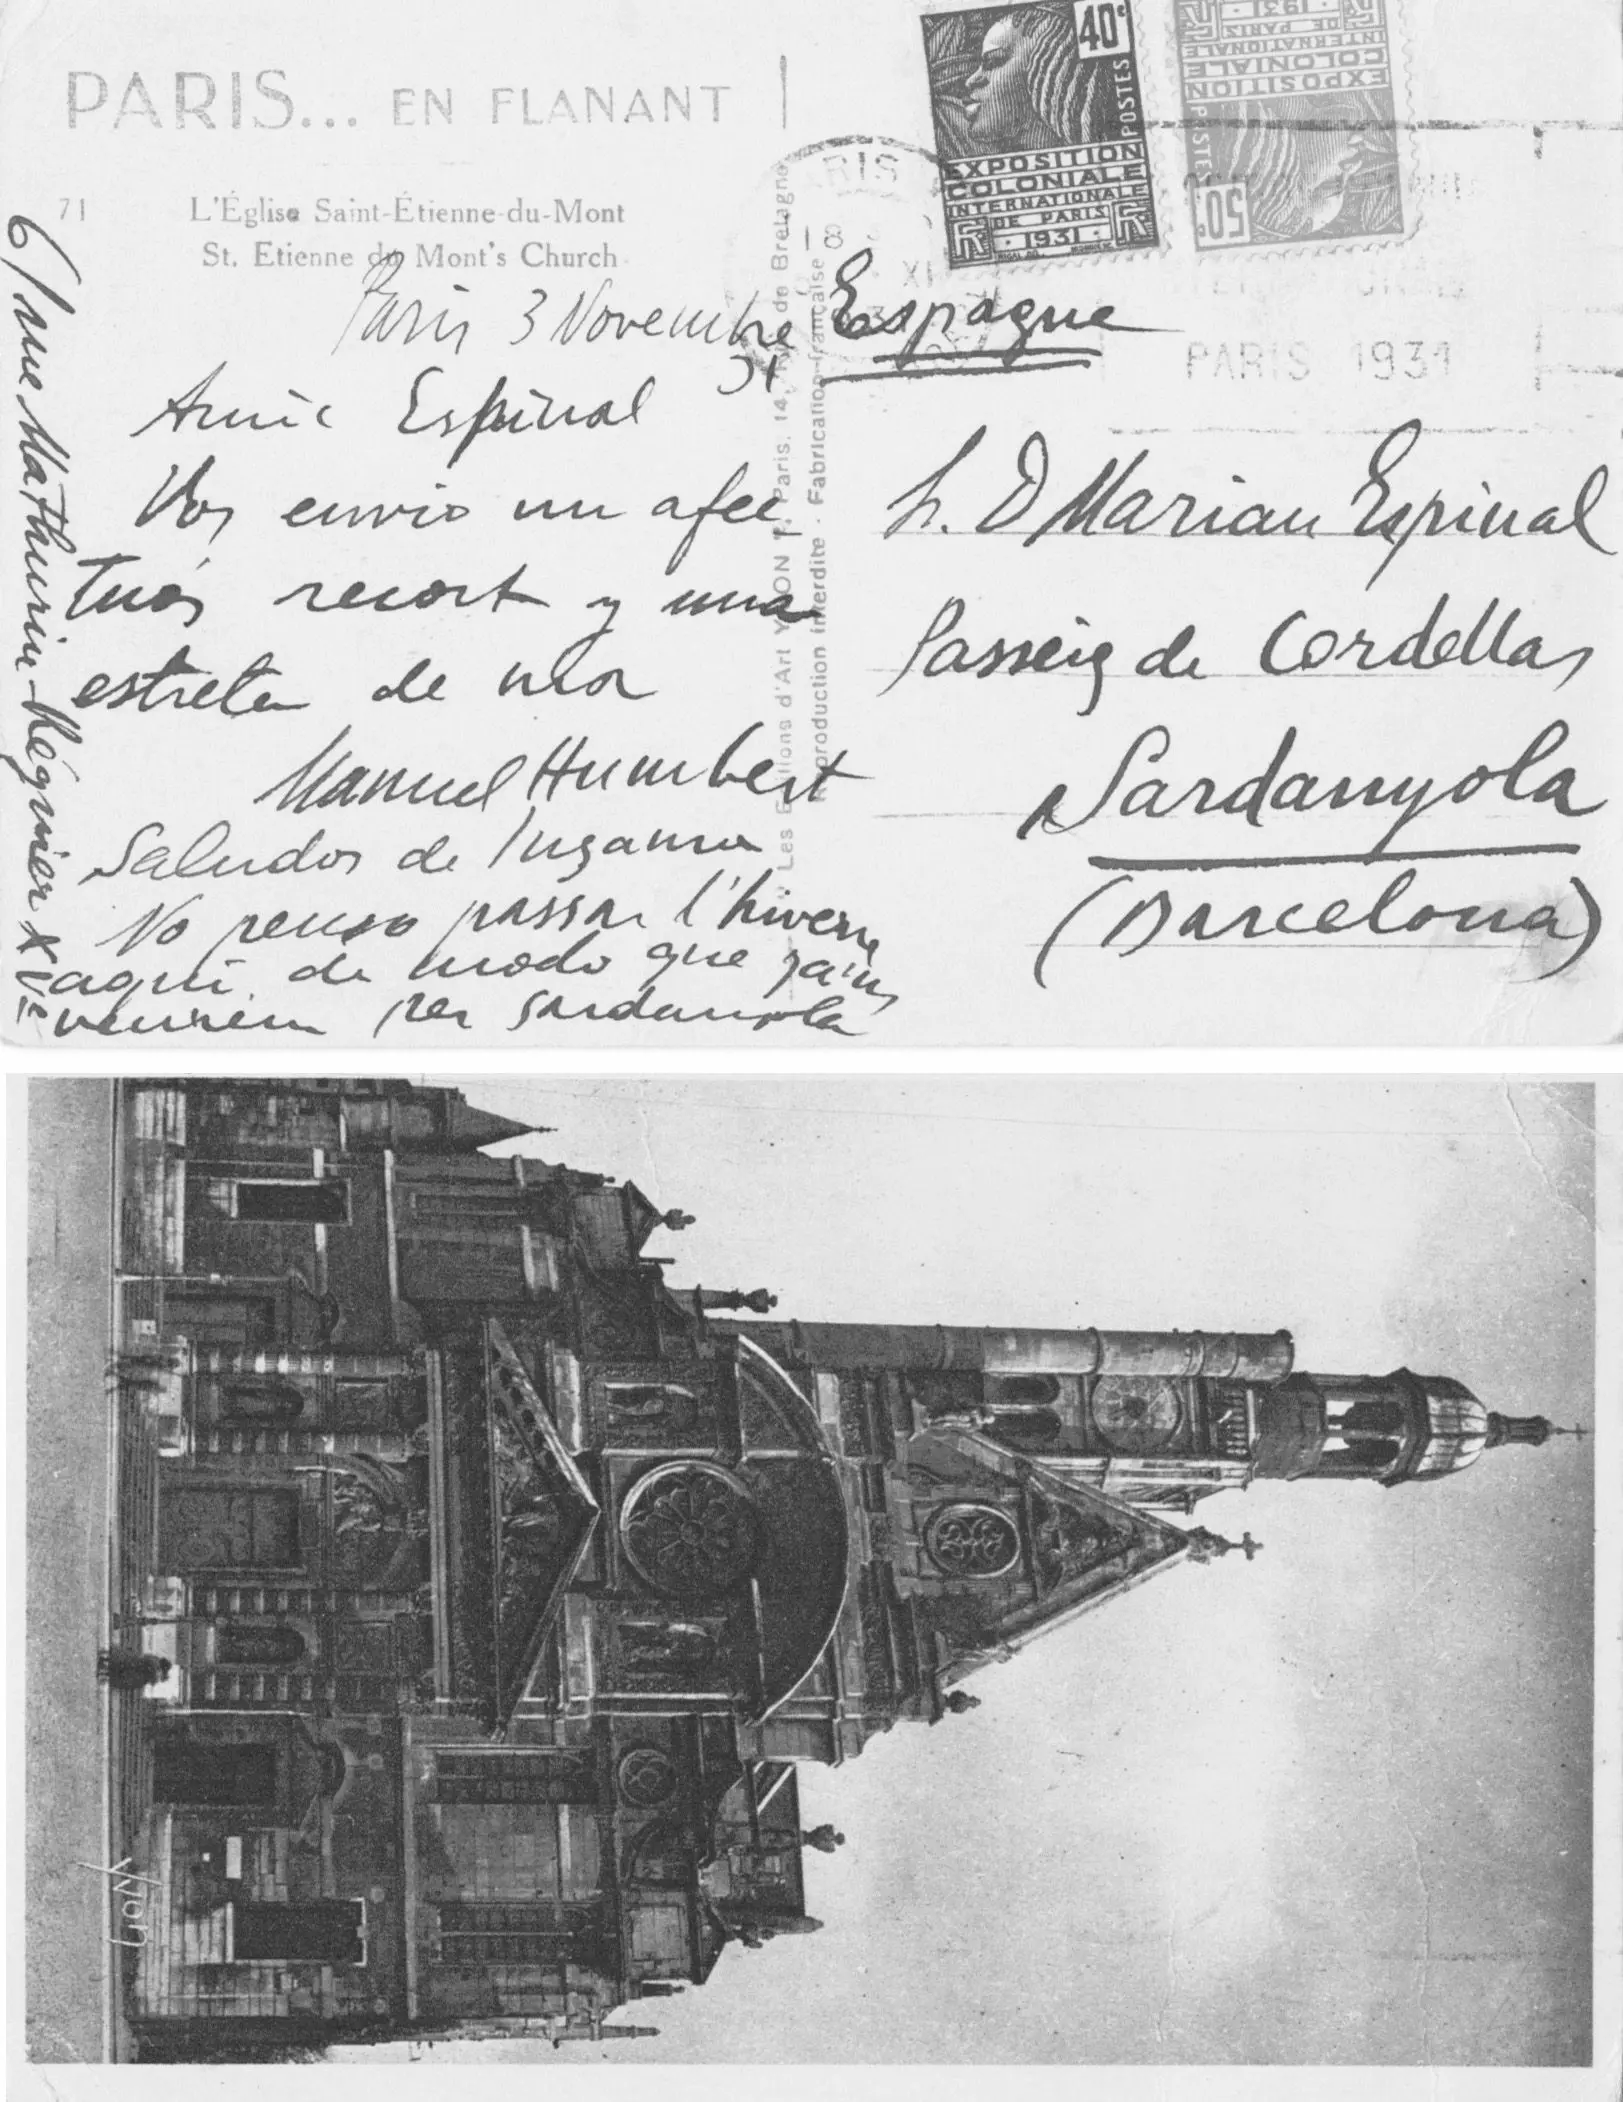 PARIS... EN FLANANT
71
L'Église Saint-Étienne-du-Mont
St. Etienne du Mont's Church
Paris 3 Novembre
31
Amic Espinal
Vos envio un afec
tuós recort y una
estreta de ma
Manuel Humbert
Saludos de
No penso passar l'hivern
aqui de modo que ja ns
veurem per Sardanyola
6 rue Mathurin-Régnier XVe
Les Editions d'Art YVON Paris, 14, Rue de Bretagne
Reproduction interdite - Fabrication française
40c
POSTES
EXPOSITION
COLONIALE
INTERNATIONALE
DE PARIS
RF 1931 RF
50c
POSTES
EXPOSITION
COLONIALE
INTERNATIONALE
DE PARIS
RF 1931 RF
PARIS
18
XI
PARIS 1931
Espagne
Sr. D Marian Espinal
Passeig de Cordellas
Sardanyola
(Barcelona)
Yvon